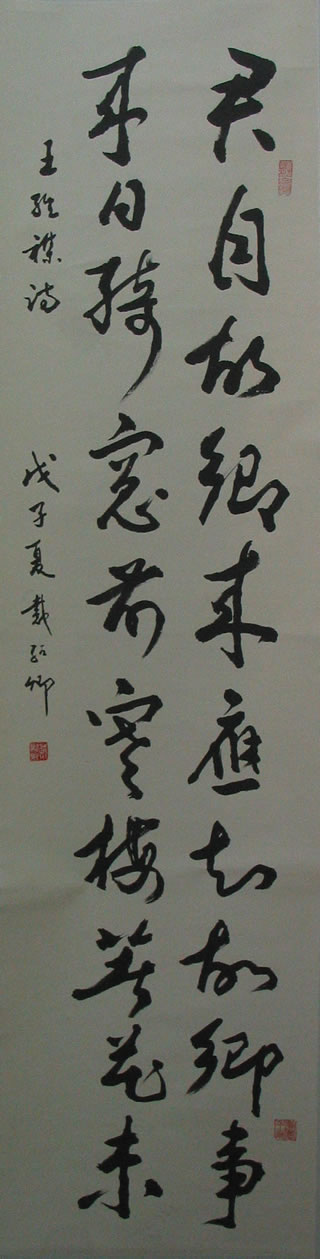 君自故鄉来應知故鄉事
来日綺窓前寒梅著花未
王維雜詩
戊子夏戴紹卿